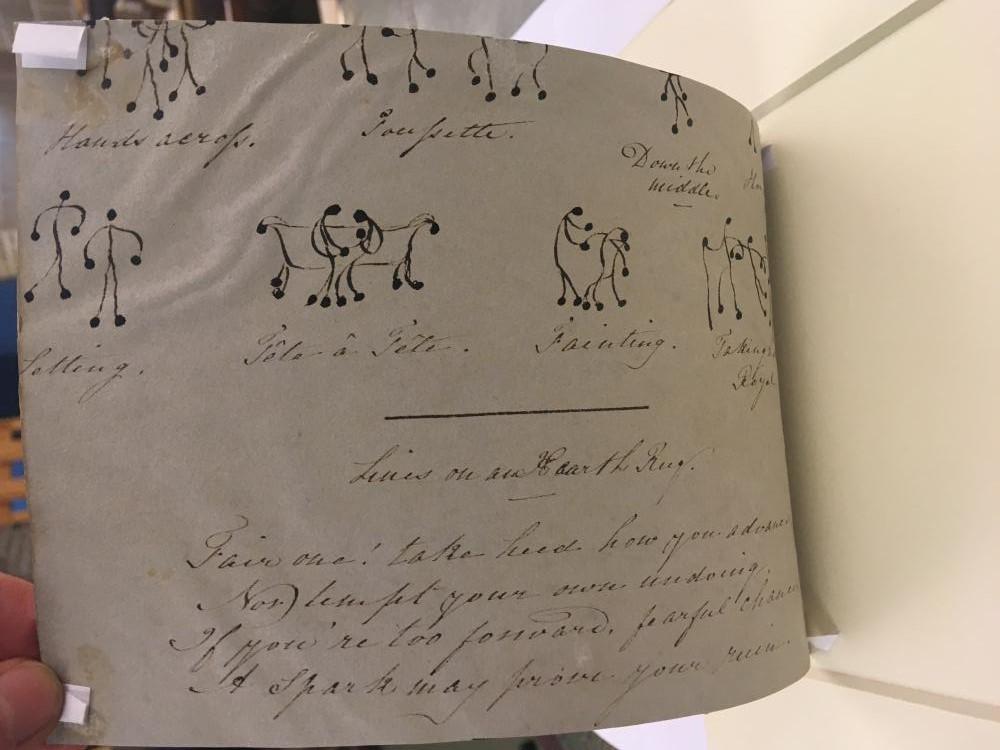 Hands across.
Poussette.
Down the
middle.
Setting.
Tête â Tête.
Fainting.
Taking
Royal
Lines on an Hearth Rug.
Fair one! take heed how you advance
Nor tempt your own undoing,
If you're too forward, fearful chance
A Spark may prove your ruin.